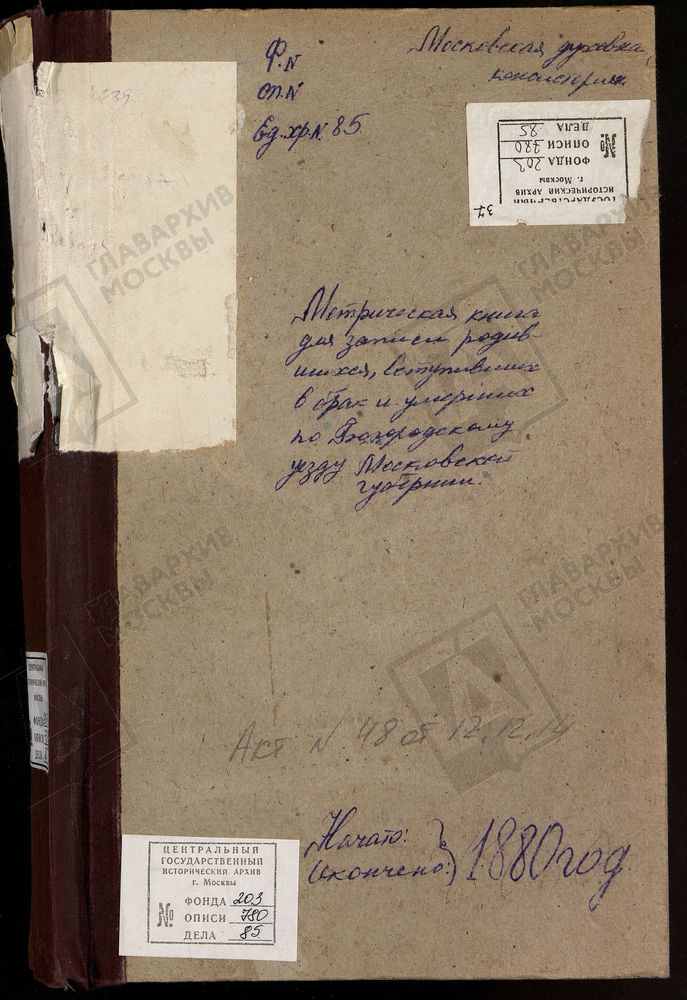 Ф. №
оп. №
Ед. хр. № 85.
Московская духовная
консистория
ГОСУДАРСТВЕННЫЙ
ИСТОРИЧЕСКИЙ АРХИВ
г. Москвы
№ ФОНДА 203
ОПИСИ 780
ДЕЛА 85
37
Метрическая книга
для записи родив-
шихся, вступивших
в брак и умерших
по Богородскому
уезду Московской
губернии.
Акт № 48 от 12.12.14
Начато:
(окончено:) } 1880 год
ЦЕНТРАЛЬНЫЙ
ГОСУДАРСТВЕННЫЙ
ИСТОРИЧЕСКИЙ АРХИВ
г. Москвы
№ ФОНДА 203
ОПИСИ 780
ДЕЛА 85
ЦЕНТРАЛЬНЫЙ
МОСКВЫ
ФОНД
ОПИС
ДЕЛА
ГЛАВАРХИВ
МОСКВЫ
ГЛАВАРХИВ
МОСКВЫ
ГЛАВАРХИВ
МОСКВЫ
ГЛАВАРХИВ
МОСКВЫ